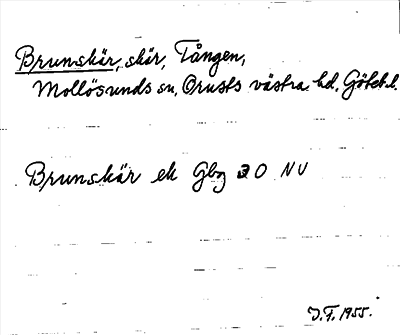 Brunskär, skär, Tången,
Mollösunds sn, Orusts västra hd, Götebl.
Brunskär ek Gbg 20 NV
J.F. 1955.